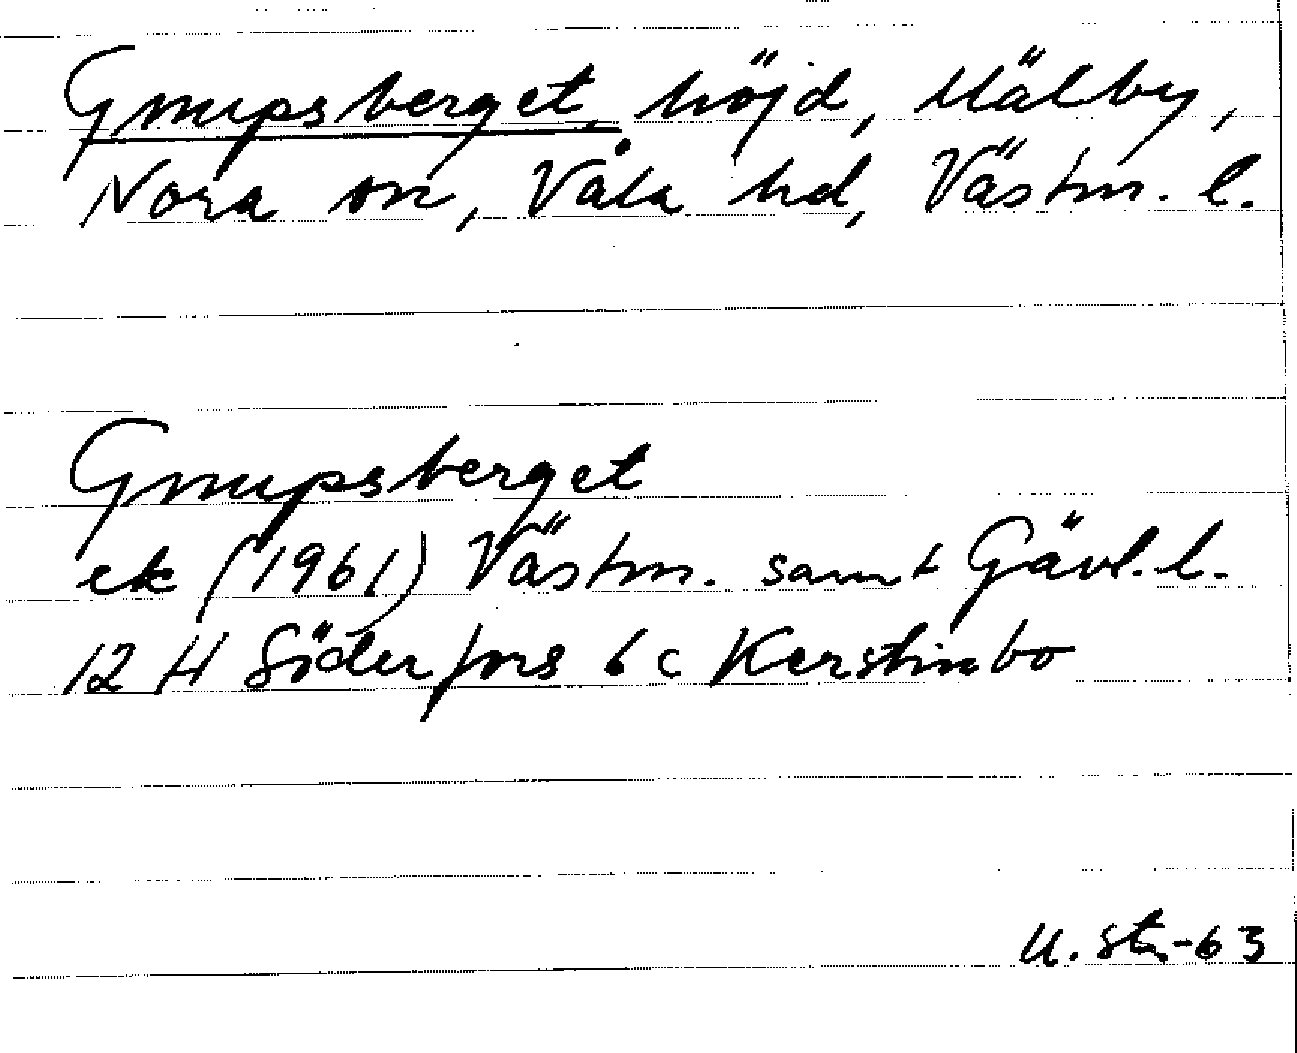 Gnupsberget, höjd, Mälby,
Nora sn, Våla hd, Västm. l.
Gnupsberget
ek (1961) Västm. samt Gävl. l.
12 H Söderfors 6 c Kerstinbo
U. Stn-63